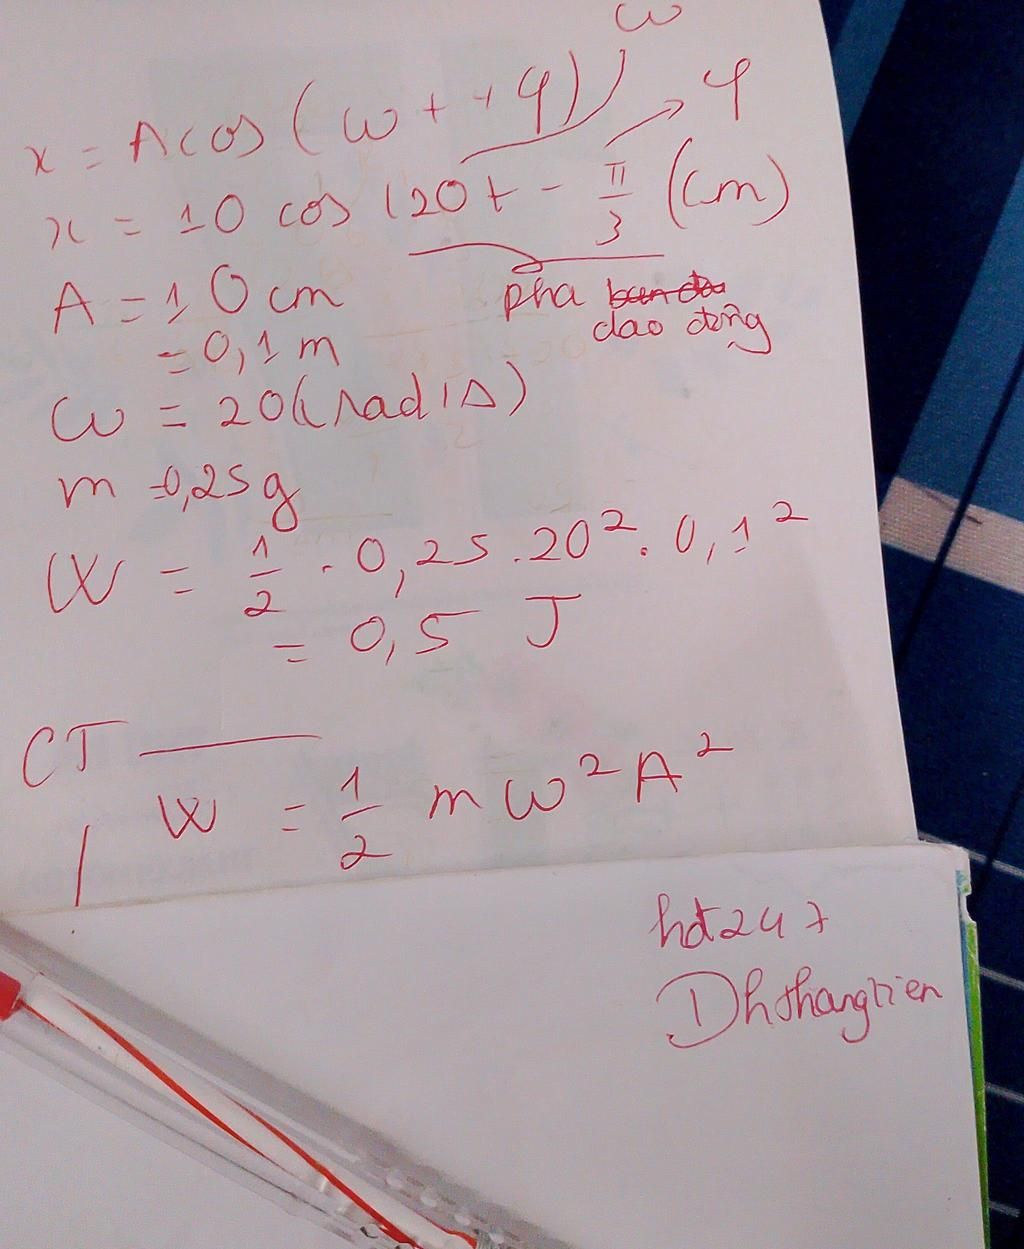 ω
x = Acos (ωt + φ) φ
x = 10 cos (20t - π/3 (cm)
A = 10 cm pha ban đầu
= 0,1 m dao động
ω = 20 (rad/s)
m = 0,25g
W = 1/2 . 0,25 . 20². 0,1²
= 0,5 J
CT
W = 1/2 m ω² A²
hdt247
Dhthangtien